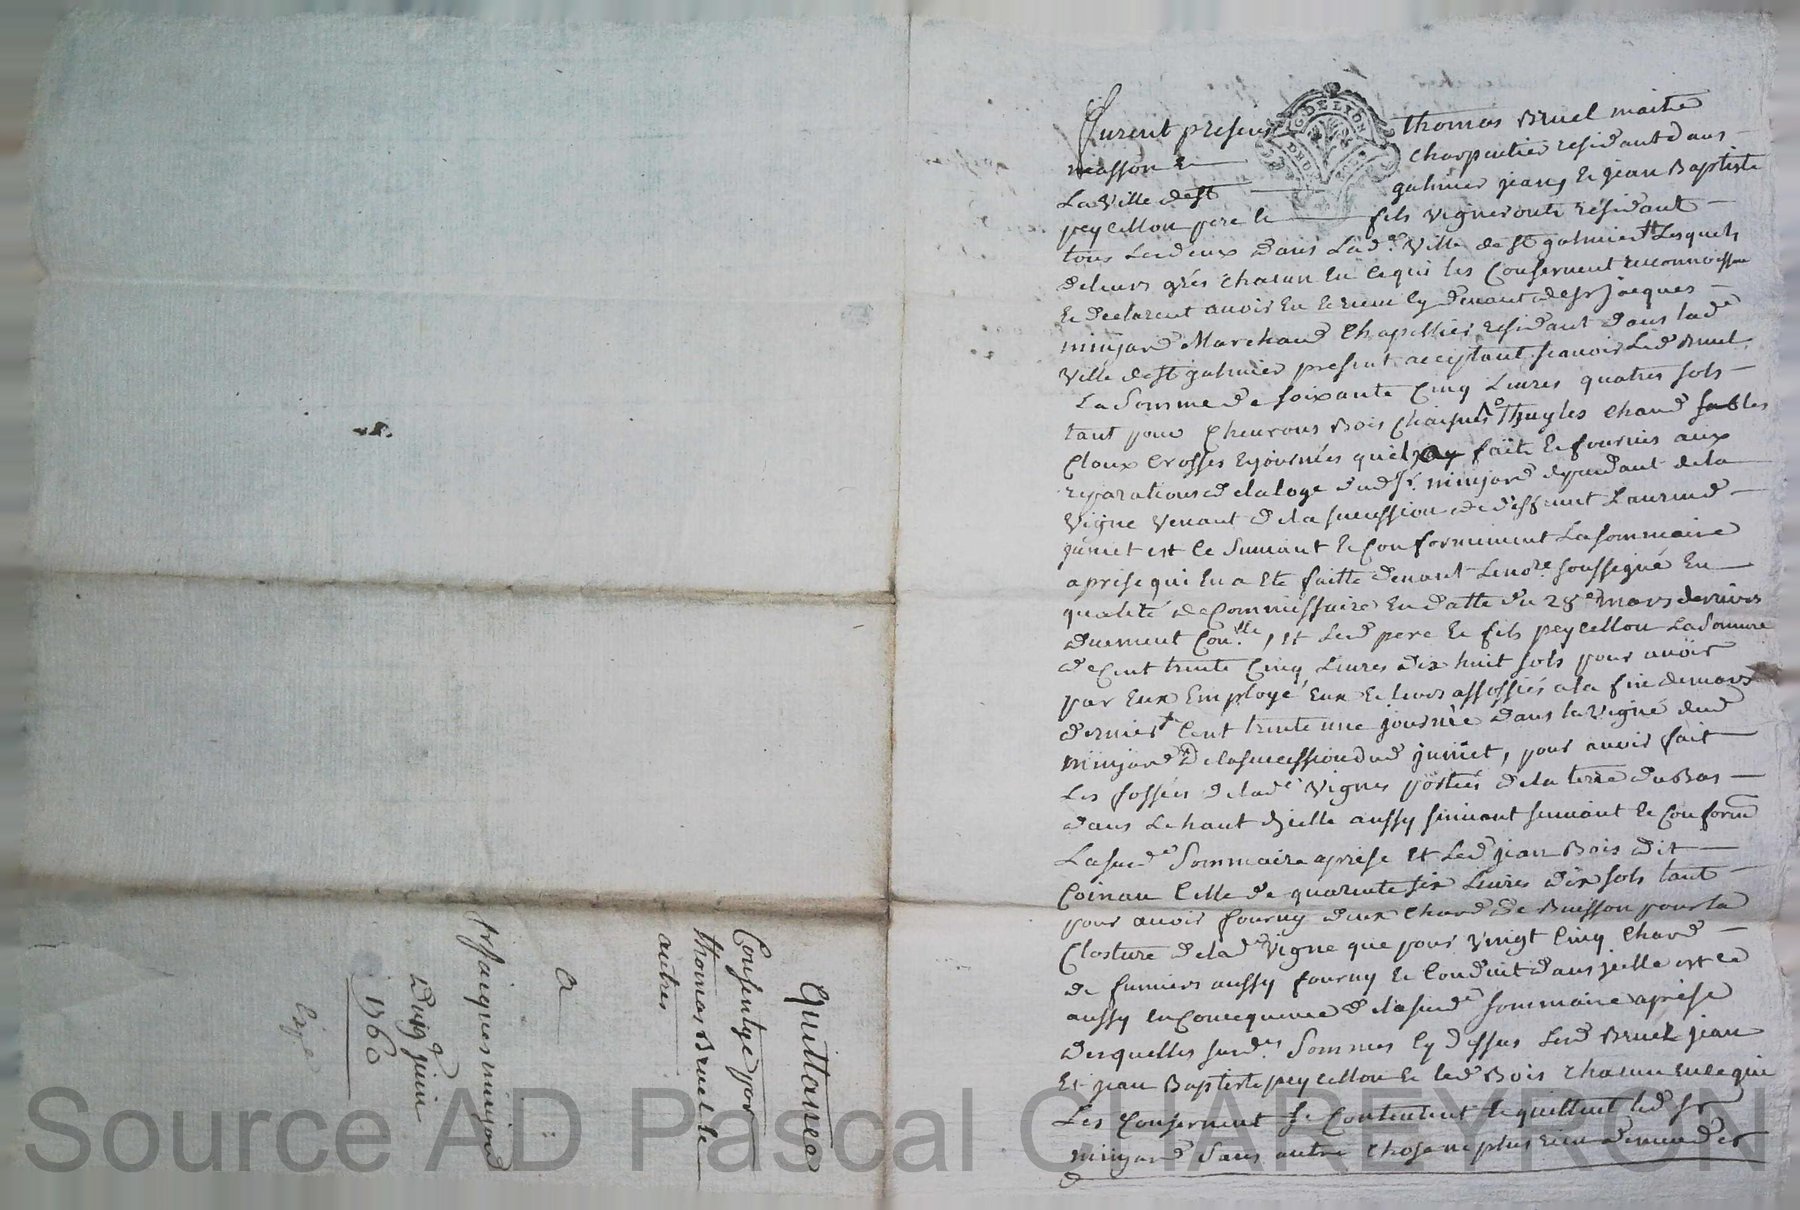 Furent presens thomas Bruel maitre
masson & charpentier residant dans
La ville de st galmier jean & jean Baptiste
peycellon pere & fils vignerons résidant
tous Lesdeux dans Lad.e ville de st galmier Lesquels
deleurs grés chacun En cequi les Consernent reconnoissent
& declarent avoir Eu & receu cy devant de sr jacques
minjard Marchand Chapellier residant dans lad.e
ville de st galmier present acceptant scavoir Led Bruel
La Somme de soixante Cinq Livres quatres sols
tant pour Chevrons Bois Thuyles chaud sables
Cloux Crosses & journées quil faite & fournis aux
reparations de la loge dud sr. minjard dependant de la
vigne venant de la succession de deffunt Laurend
jumet et ce suivant & Conformement La sommaire
aprise qui En a Eté faitte devant Le no.re soussigné En
qualité de Commissaire En datte du 28.e mars dernier
duement Con.lle, et Led pere & fils peycellon La somme
de Cent trente Cinq Livres dix huit sols pour avoir
par Eux Employé Eux & leurs assossiés a la fin de mars
dernier Cent trente une journée dans la vigne dud
minjard de la succession dud jumet, pour avoir fait
Les fossés de lad.e vigne portés de la terre du Bas
dans Le haut dicelle aussy suivant & Conform
La susd.e Sommaire aprise et Led jean Bois dit
Coinau Celle de quarente six Livres dix sols tant
pour avoir fourny deux chard de Buisson pour la
Closture de lad.e vigne que pour vingt Cinq chard
de fumiers aussy fourny & Conduit dans jcelle et ce
aussy en Consequence de la susd.e sommaire aprise
desquelles susd.es Sommes Cy dessus Led Bruel jean
Et jean Baptiste peycellon & led Bois chacun en ce qui
Les Consernent se Contentent & quittent led sr
minjard sans autre chose ne plus rien demander
Quittance
Consentye par
thomas Bruel &
autres
a
sr jacques minjard
Du 9 juin
1760
Source AD Pascal CHAREYRON